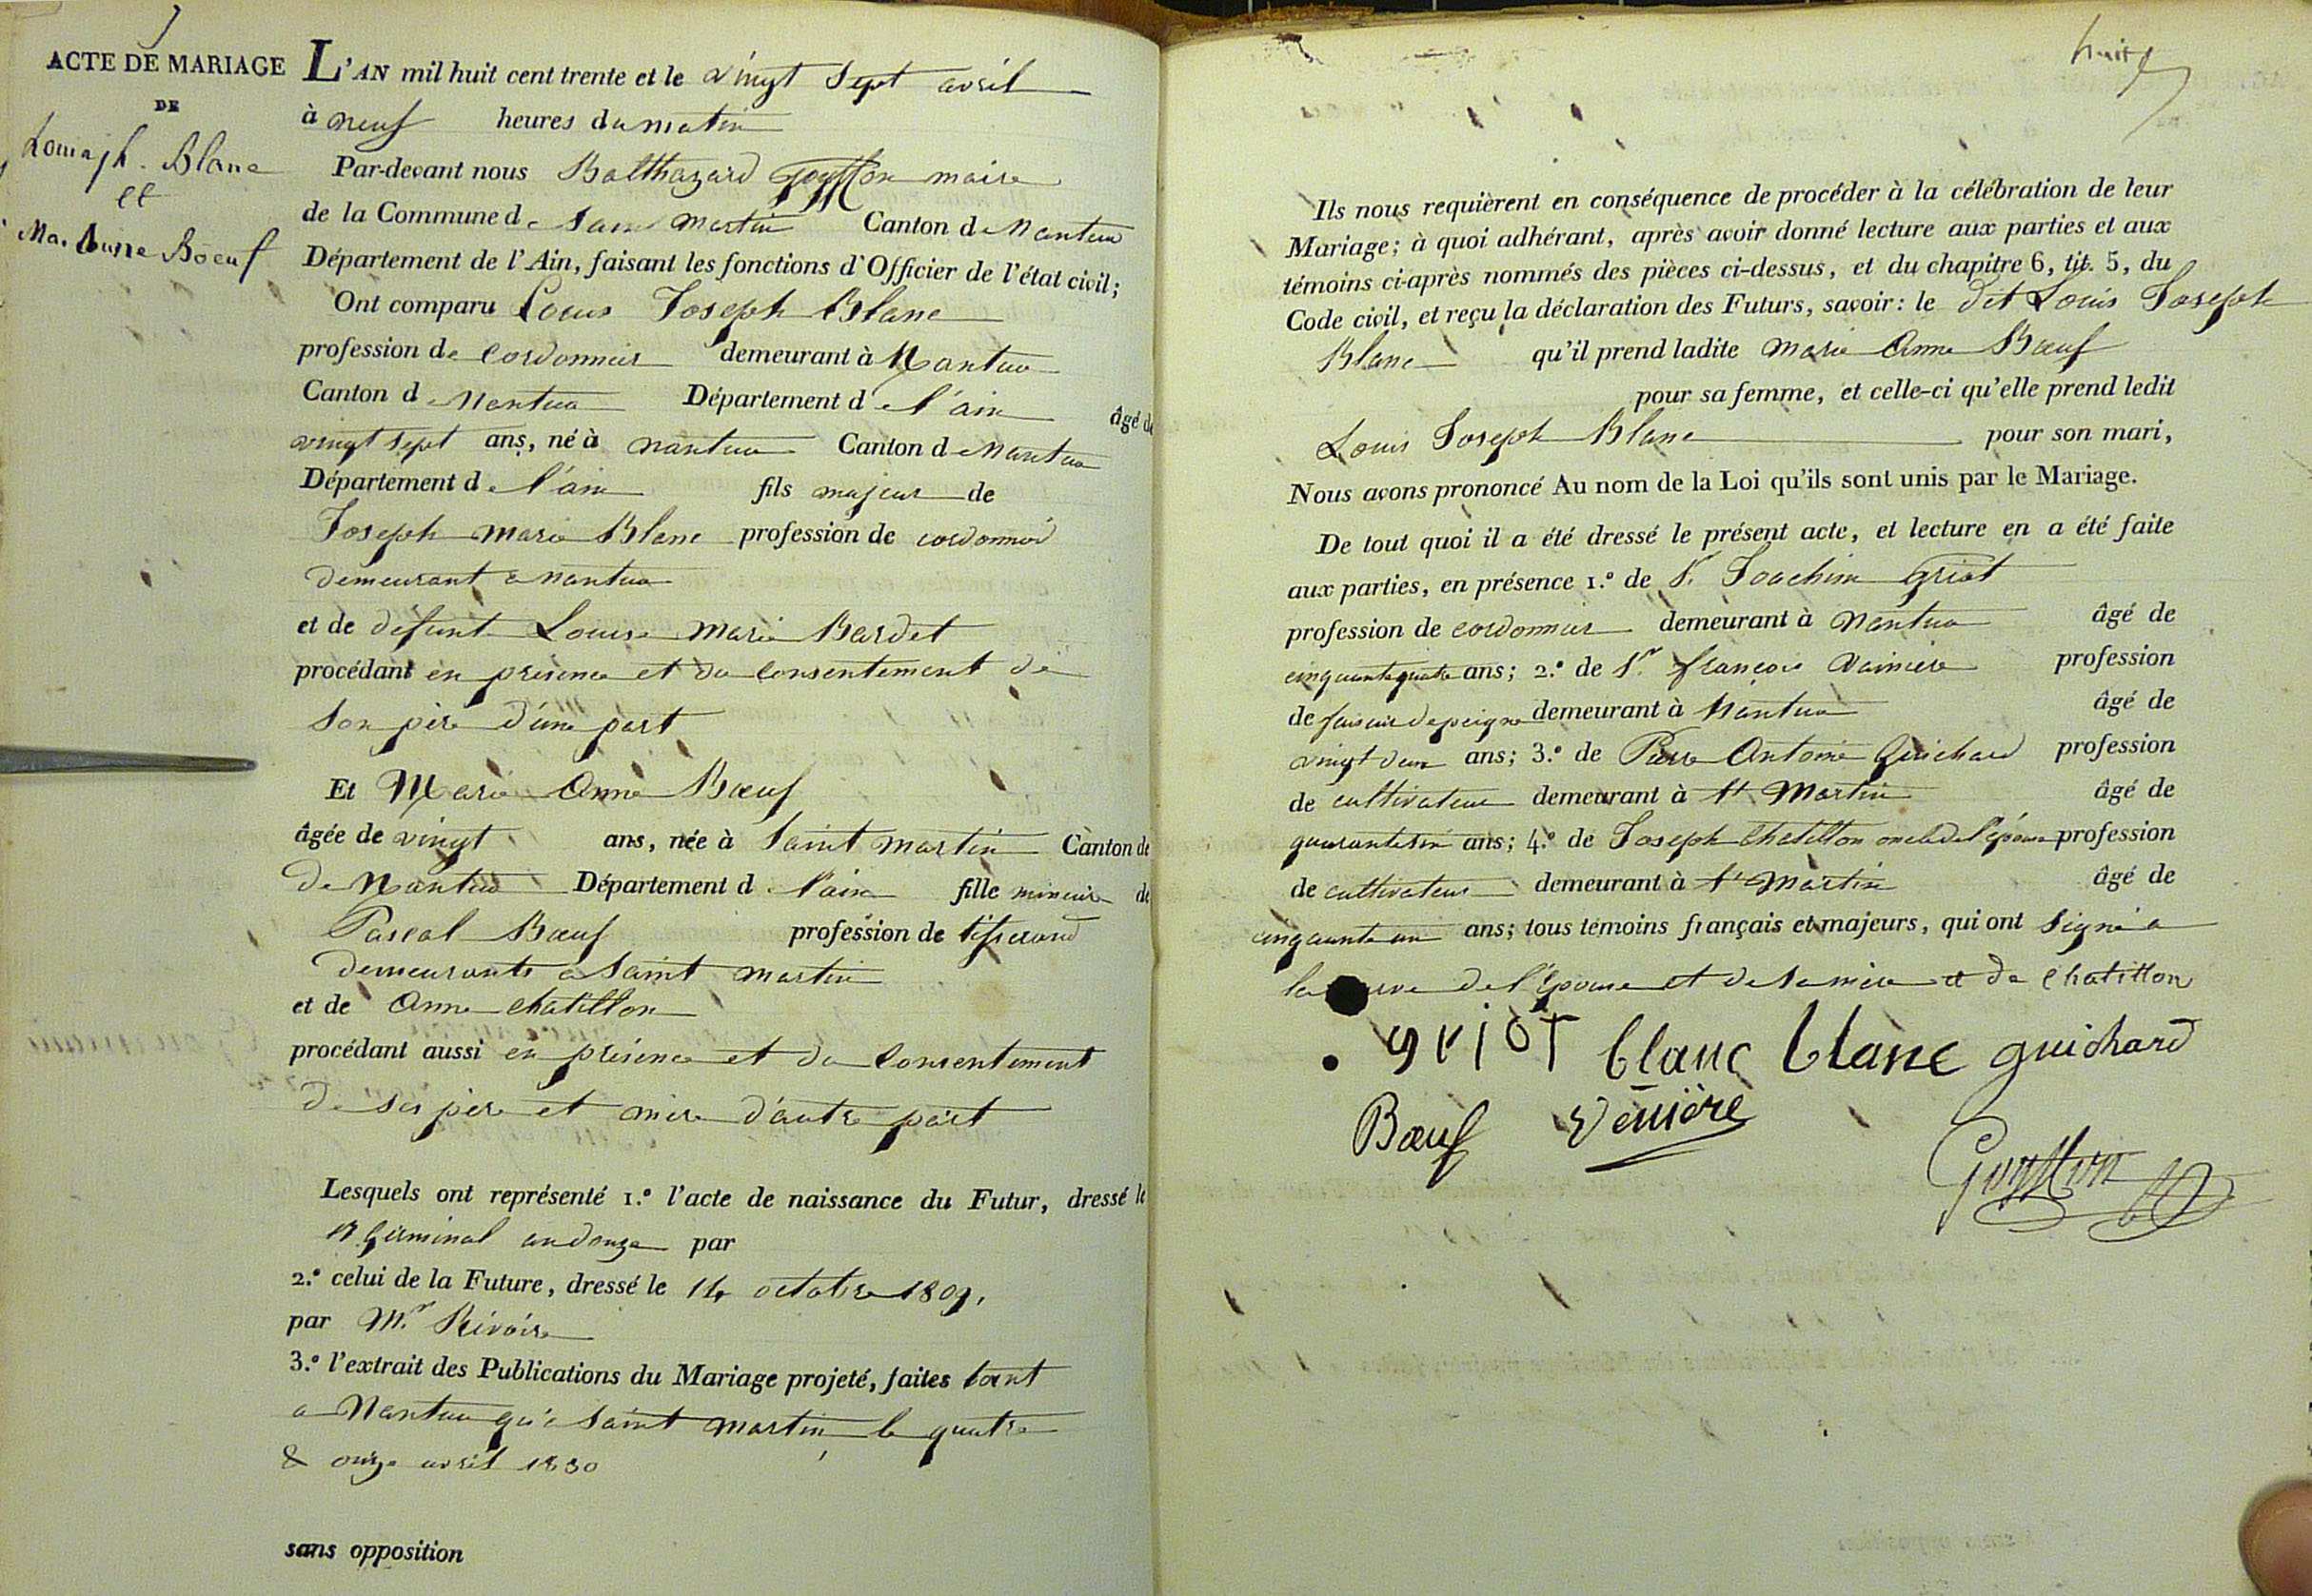 ACTE DE MARIAGE
DE
Louis jh. Blanc
et
Ma. Anne Boeuf
L'AN mil huit cent trente et le vingt sept avril
à neuf heures du matin
Par-devant nous Balthazard Gouffon maire
de la Commune de Saint Martin Canton de Nantua
Département de l'Ain, faisant les fonctions d'Officier de l'état civil;
Ont comparu Louis Joseph Blanc
profession de Cordonnier demeurant à Nantua
Canton de Nantua Département de l'ain âgé de
vingt sept ans, né à nantua Canton de Nantua
Département de l'ain fils majeur de
Joseph marie Blanc profession de cordonnier
demeurant a nantua
et de défunt Louise Marie Bardet
procédant en présence et du Consentement de
son père d'une part
Et Marie Anne Bœuf
âgée de vingt ans, née à Saint martin Canton de
de Nantua Département de l'ain fille mineure de
Pascal Bœuf profession de tisserand
demeurants a Saint martin
et de Anne chatillon
procédant aussi en présence et du Consentement
de ses père et mère d'autre part
Lesquels ont représenté 1.° l'acte de naissance du Futur, dressé le
germinal an douze par
2.° celui de la Future, dressé le 14 octobre 1809,
par Mr. Rivoire
3.° l'extrait des Publications du Mariage projeté, faites tant
a Nantua qu'a Saint martin le quatre
& onze avril 1830
sans opposition
huit
Ils nous requièrent en conséquence de procéder à la célébration de leur
Mariage; à quoi adhérant, après avoir donné lecture aux parties et aux
témoins ci-après nommés des pièces ci-dessus, et du chapitre 6, tit. 5, du
Code civil, et reçu la déclaration des Futurs, savoir: le dit Louis Joseph
Blanc qu'il prend ladite marie Anne Bœuf
pour sa femme, et celle-ci qu'elle prend ledit
Louis Joseph Blanc pour son mari,
Nous avons prononcé Au nom de la Loi qu'ils sont unis par le Mariage.
De tout quoi il a été dressé le présent acte, et lecture en a été faite
aux parties, en présence 1.° de Sr. Joachim Griot
profession de cordonnier demeurant à Nantua âgé de
cinquante quatre ans; 2.° de Sr. françois Vainiere profession
de faiseur de peigne demeurant à Nantua âgé de
vingt deux ans; 3.° de Pierre Antoine Guichard profession
de cultivateur demeurant à St Martin âgé de
quarante six ans; 4.° de Joseph Chatillon oncle de l'épouse profession
de cultivateur demeurant à St Martin âgé de
cinquante un ans; tous témoins français et majeurs, qui ont signé a
la de l'Epouse et de sa mère et de Chatillon
griot blanc blanc guichard
Bœuf Venière
Gouffon